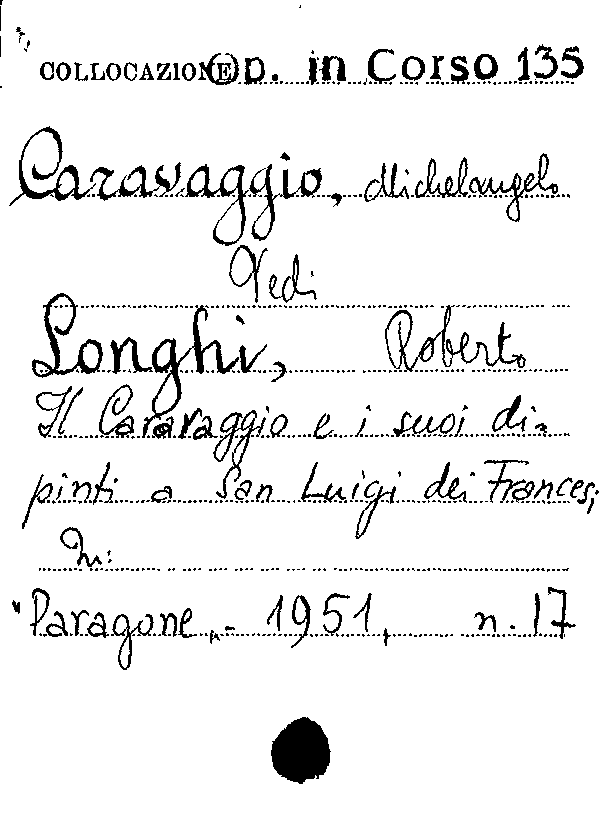 COLLOCAZIONE Op. in Corso 135
Caravaggio, Michelangelo
Vedi
Longhi, Roberto
Il Caravaggio e i suoi di=
pinti a San Luigi dei Francesi
In:
"Paragone„- 1951, n. 17